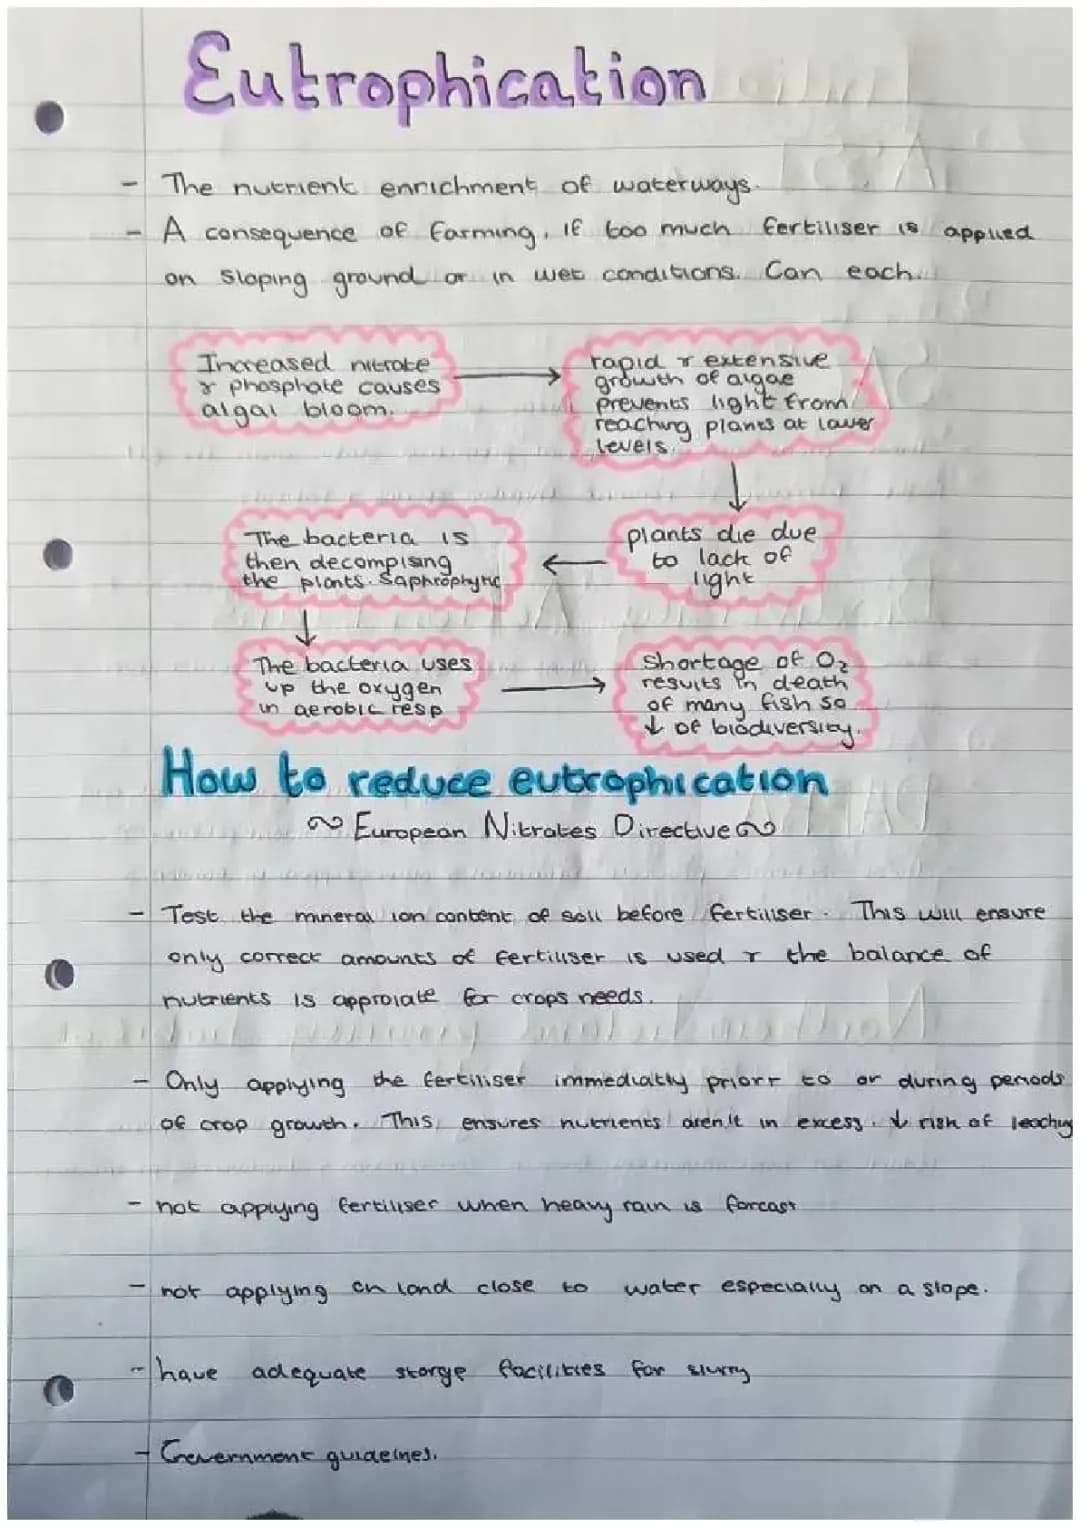 Eutrophication
- The nutrient enrichment of waterways.
- A consequence of farming, if too much fertiliser is applied
on sloping ground or in wet conditions. Can each.
Increased nitrate
& phosphate causes
algal bloom.
rapid & extensive
growth of algae
prevents light from
reaching plants at lower
levels.
plants die due
to lack of
light
The bacteria is
then decompising
the plants. Saphrophytic
The bacteria uses
up the oxygen
in aerobic resp
Shortage of O₂
results in death
of many fish so
↓ of biodiversity.
How to reduce eutrophication
~ European Nitrates Directive ~
- Test the mineral ion content of soil before fertiliser. This will ensure
only correct amounts of fertiliser is used & the balance of
nutrients is approiate for crops needs.
- Only applying the fertiliser immediatly priorr to or during periods
of crop growth. This ensures nutrients aren't in excess. ↓ risk of leaching
- not applying fertiliser when heavy rain is forcast
- not applying on land close to water especially on a slope.
- have adequate storge facilities for slurry
- Government guidelnes.